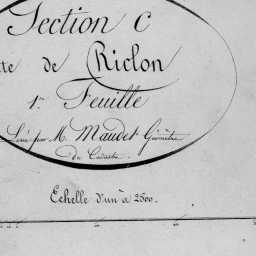 Section C
te de Riclon
1re Feuille
Levée par Mr Maudet Géomètre
du Cadastre.
Echelle d'un à 2500.